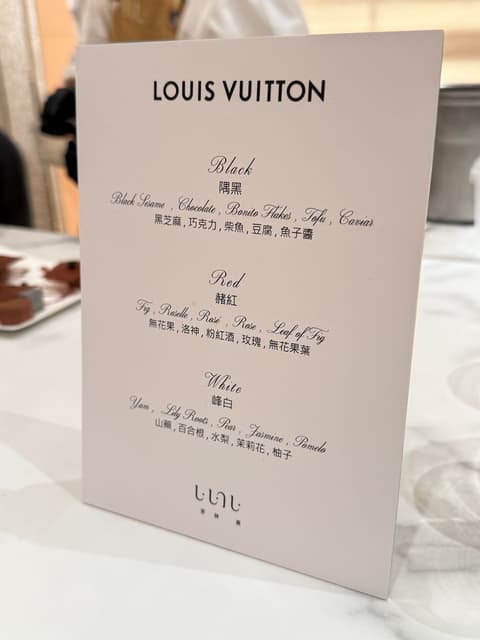 LOUIS VUITTON
Black
隅黑
Black Sesame , Chocolate , Bonito Flakes , Tofu , Caviar
黑芝麻 , 巧克力 , 柴魚 , 豆腐 , 魚子醬
Red
赭紅
Fig , Roselle , Rosé , Rose , Leaf of Fig
無花果 , 洛神 , 粉紅酒 , 玫瑰 , 無花果葉
White
峰白
Yam , Lily Roots , Pear , Jasmine , Pomelo
山藥 , 百合根 , 水梨 , 茉莉花 , 柚子